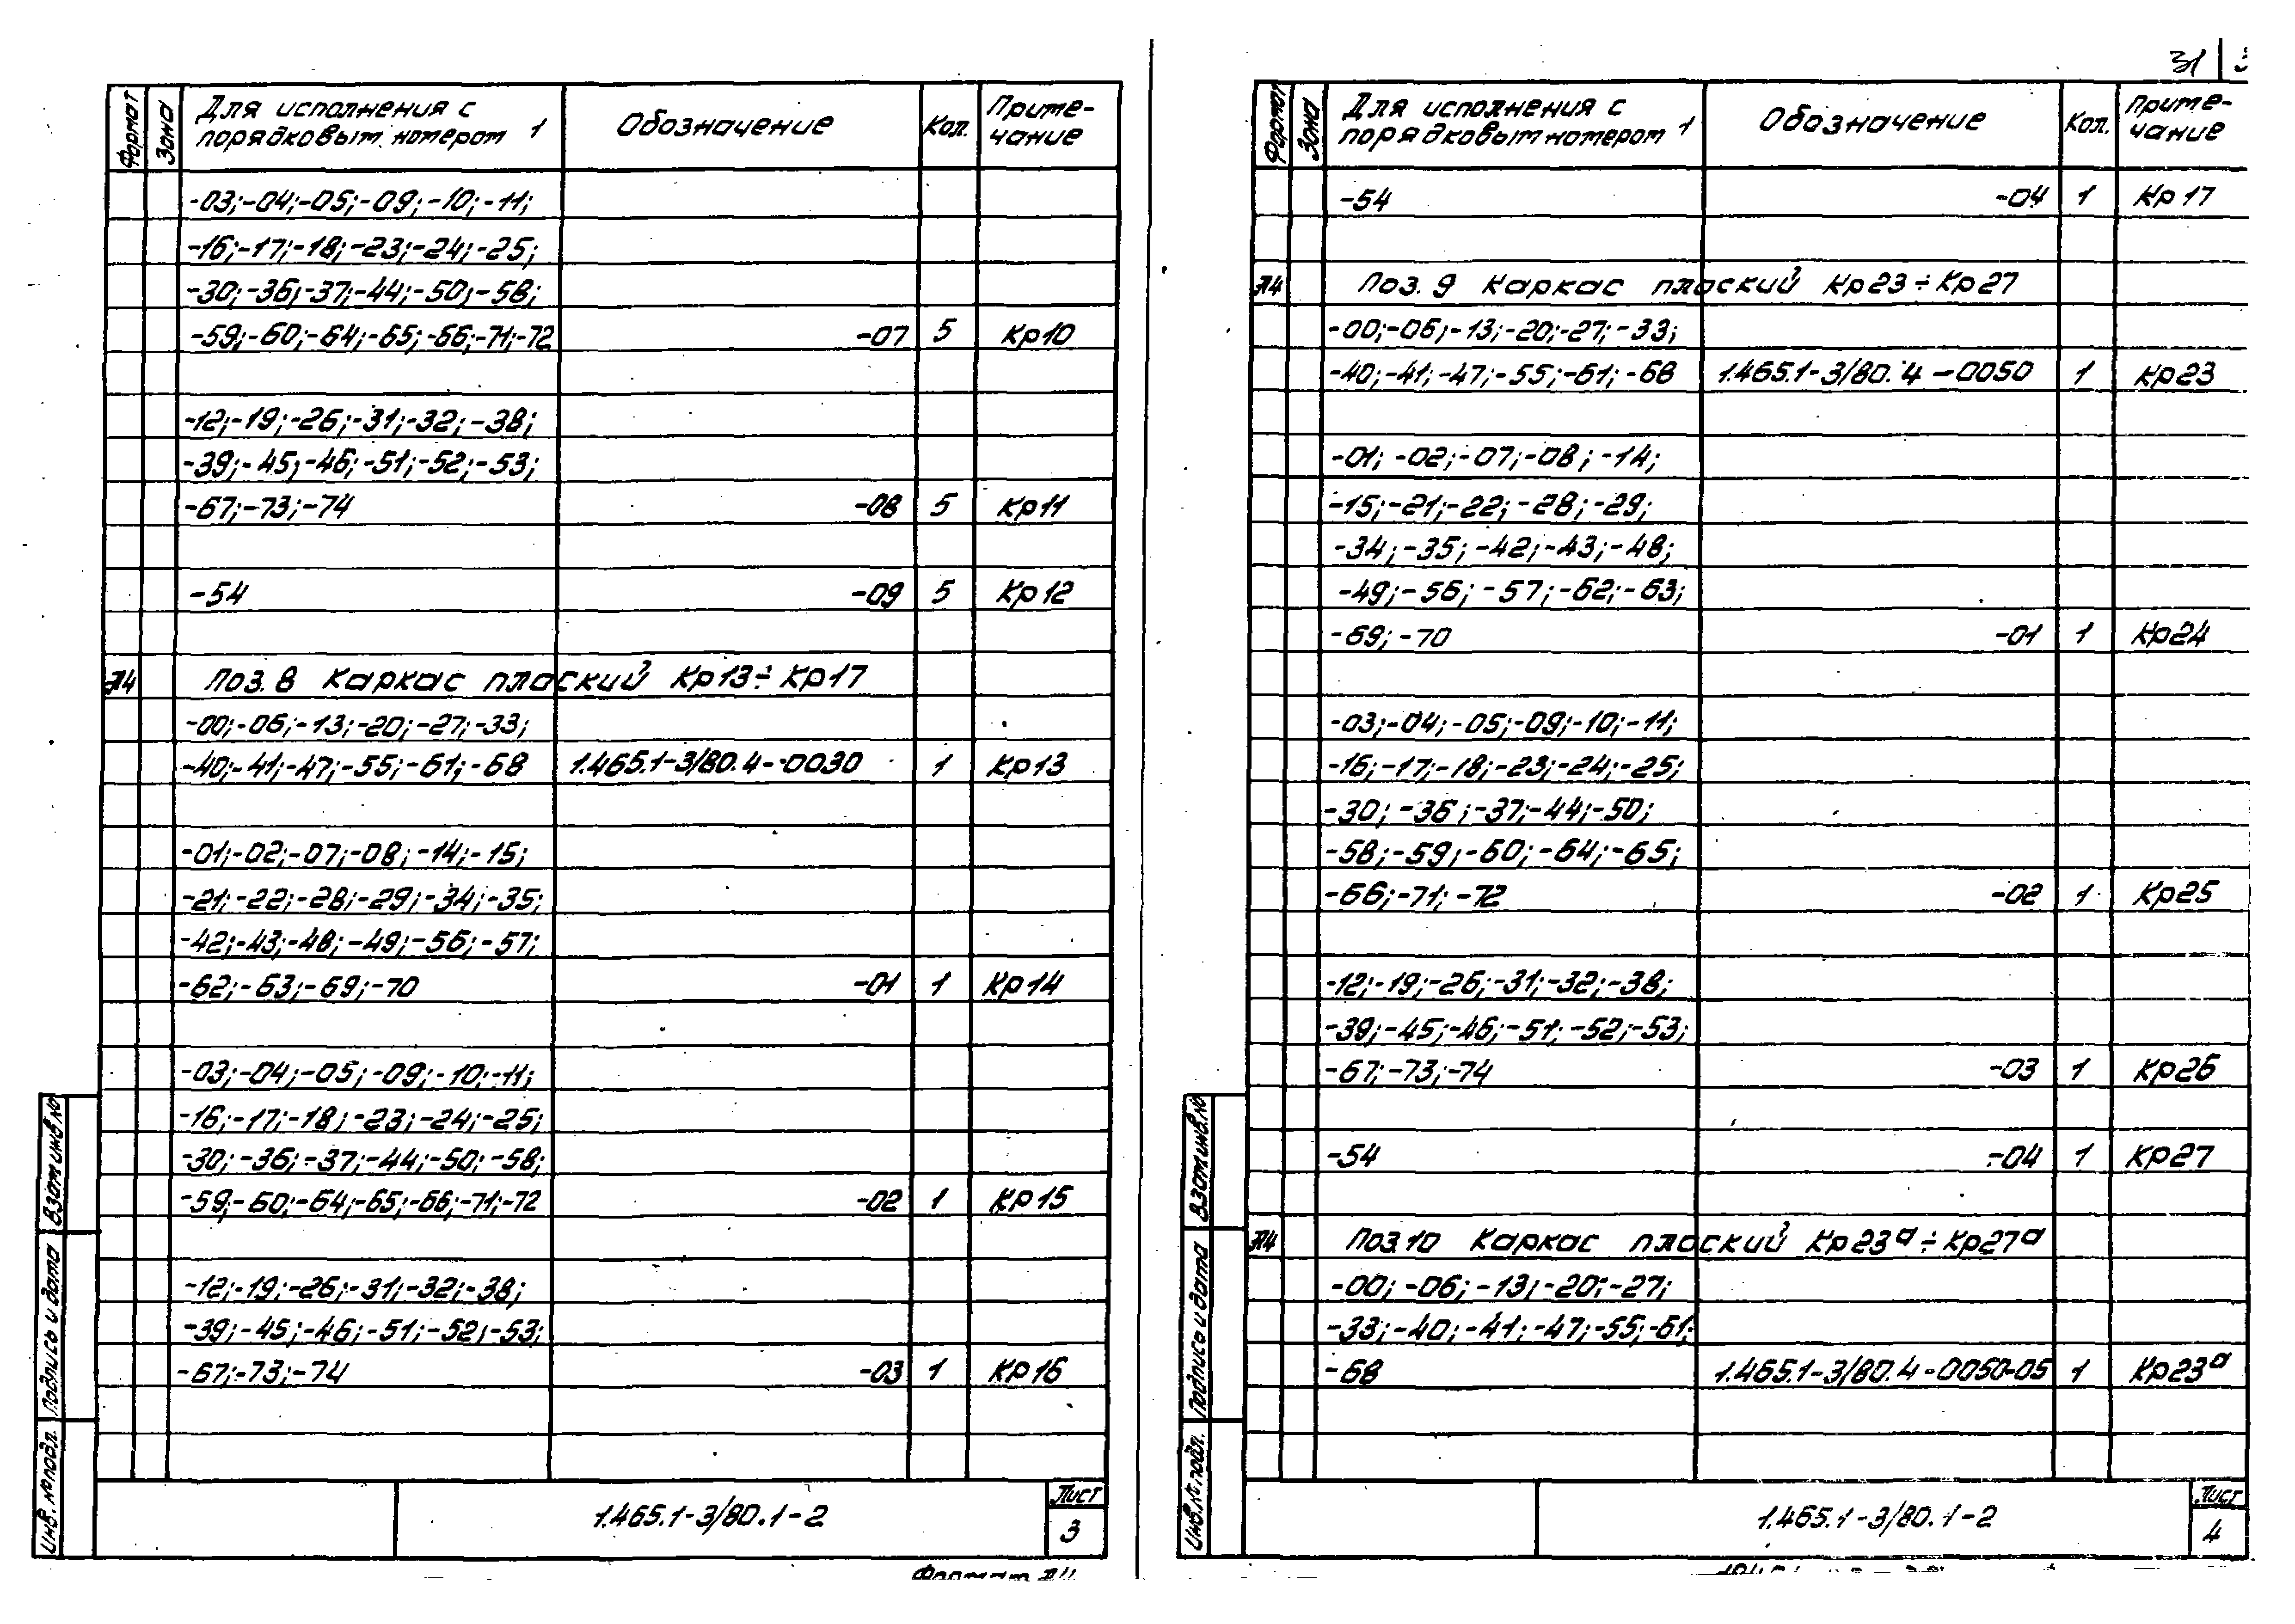 31
Формат
Зона
Для исполнения с
порядковым номером 1
Обозначение
Кол.
Приме-
чание
-03;-04;-05;-09;-10;-11;
-16;-17;-18;-23;-24;-25;
-30;-36;-37;-44;-50;-58;
-59;-60;-64;-65;-66;-71;-72 -07 5 Кр10
-12;-19;-26;-31;-32;-38;
-39;-45;-46;-51;-52;-53;
-67;-73;-74 -08 5 Кр11
-54 -09 5 Кр12
А4 Поз. 8 Каркас плоский Кр13÷Кр17
-00;-06;-13;-20;-27;-33;
-40;-41;-47;-55;-61;-68 1.465.1-3/80.4-0030 1 Кр13
-01;-02;-07;-08;-14;-15;
-21;-22;-28;-29;-34;-35;
-42;-43;-48;-49;-56;-57;
-62;-63;-69;-70 -01 1 Кр14
-03;-04;-05;-09;-10;-11;
-16;-17;-18;-23;-24;-25;
-30;-36;-37;-44;-50;-58;
-59;-60;-64;-65;-66;-71;-72 -02 1 Кр15
-12;-19;-26;-31;-32;-38;
-39;-45;-46;-51;-52;-53;
-67;-73;-74 -03 1 Кр16
Взам инв. №
Подпись и дата
Инв. № подл.
1.465.1-3/80.1-2
Лист
3
Формат А4
Формат
Зона
Для исполнения с
порядковым номером 1
Обозначение
Кол.
Приме-
чание
-54 -04 1 Кр17
А4 Поз. 9 Каркас плоский Кр23÷Кр27
-00;-06;-13;-20;-27;-33;
-40;-41;-47;-55;-61;-68 1.465.1-3/80.4-0050 1 Кр23
-01;-02;-07;-08;-14;
-15;-21;-22;-28;-29;
-34;-35;-42;-43;-48;
-49;-56;-57;-62;-63;
-69;-70 -01 1 Кр24
-03;-04;-05;-09;-10;-11;
-16;-17;-18;-23;-24;-25;
-30;-36;-37;-44;-50;
-58;-59;-60;-64;-65;
-66;-71;-72 -02 1 Кр25
-12;-19;-26;-31;-32;-38;
-39;-45;-46;-51;-52;-53;
-67;-73;-74 -03 1 Кр26
-54 -04 1 Кр27
А4 Поз.10 Каркас плоский Кр23а÷Кр27а
-00;-06;-13;-20;-27;
-33;-40;-41;-47;-55;-61;
-68 1.465.1-3/80.4-0050-05 1 Кр23а
Взам инв. №
Подпись и дата
Инв. № подл.
1.465.1-3/80.1-2
Лист
4